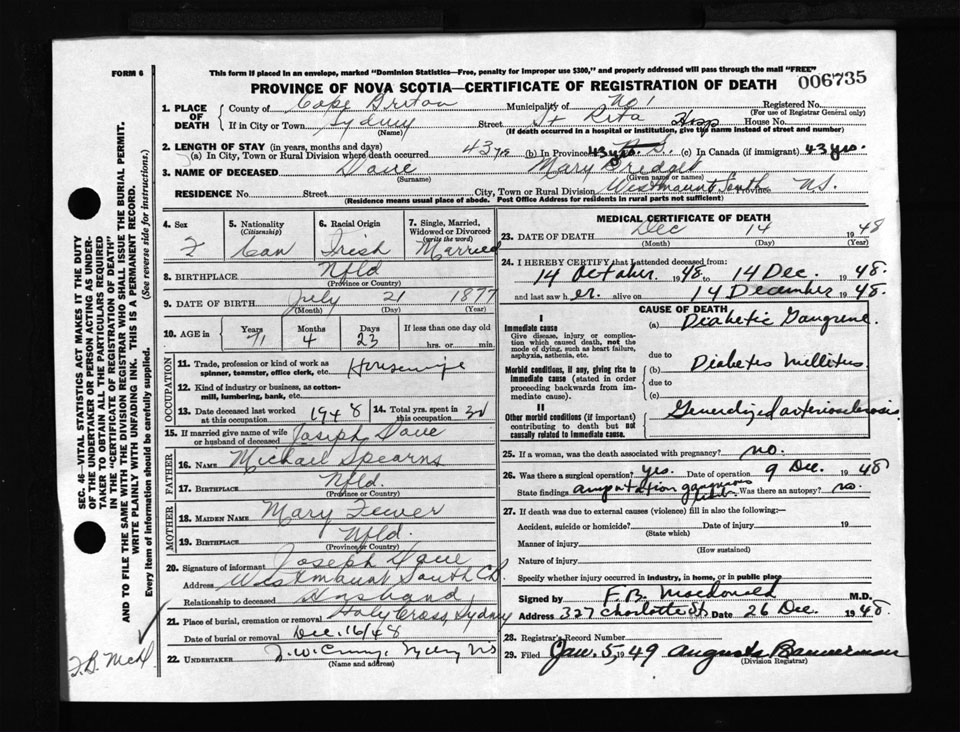 FORM 6
This form if placed in an envelope, marked "Dominion Statistics—Free, penalty for improper use $300," and properly addressed will pass through the mail "FREE"
006735
PROVINCE OF NOVA SCOTIA—CERTIFICATE OF REGISTRATION OF DEATH
1. PLACE OF DEATH
County of Cape Breton Municipality of No 1 Registered No.
(For use of Registrar General only)
If in City or Town Sydney Street St Rita Hosp House No.
(Name) (If death occurred in a hospital or institution, give the name instead of street and number)
2. LENGTH OF STAY (in years, months and days)
(a) In City, Town or Rural Division where death occurred 43 yrs (b) In Province 43 yrs. (c) In Canada (if immigrant) 43 yrs.
3. NAME OF DECEASED Dave Mary Bridget
(Surname) (Given name or names)
RESIDENCE No. Street City, Town or Rural Division Westmount South N.S.
(Residence means usual place of abode. Post Office Address for residents in rural parts not sufficient)
4. Sex F
5. Nationality (Citizenship) Can
6. Racial Origin Irish
7. Single, Married, Widowed or Divorced (write the word) Married
8. BIRTHPLACE Nfld
(Province or Country)
9. DATE OF BIRTH July 21 1877
(Month) (Day) (Year)
10. AGE in Years 71 Months 4 Days 23 If less than one day
hrs. or min.
OCCUPATION
11. Trade, profession or kind of work as spinner, teamster, office clerk, etc. Housewife
12. Kind of industry or business, as cotton-mill, lumbering, bank, etc.
13. Date deceased last worked at this occupation 1948 14. Total yrs. spent in this occupation 30
15. If married give name of wife or husband of deceased Joseph Dave
FATHER
16. NAME Michael Spearns
17. BIRTHPLACE Nfld.
(Province or Country)
MOTHER
18. MAIDEN NAME Mary
19. BIRTHPLACE Nfld.
(Province or Country)
20. Signature of informant Joseph Dave
Address Westmount South C.B.
Relationship to deceased Husband
21. Place of burial, cremation or removal Holy Cross, Sydney
Date of burial or removal Dec. 16/48
22. UNDERTAKER
(Name and address)
MEDICAL CERTIFICATE OF DEATH
23. DATE OF DEATH Dec 14 1948
(Month) (Day) (Year)
24. I HEREBY CERTIFY that I attended deceased from:
14 October. 1948 to 14 Dec. 1948.
and last saw h er. alive on 14 December 1948.
CAUSE OF DEATH
I
Immediate cause
Give disease, injury or complication which caused death, not the mode of dying, such as heart failure, asphyxia, asthenia, etc.
(a) Diabetic Gangrene.
due to
Morbid conditions, if any, giving rise to immediate cause (stated in order proceeding backwards from immediate cause).
(b) Diabetes Mellitus.
due to
(c)
II
Other morbid conditions (if important) contributing to death but not causally related to immediate cause.
Generalized arteriosclerosis
25. If a woman, was the death associated with pregnancy? no.
26. Was there a surgical operation? yes. Date of operation 9 Dec. 1948
State findings amputation gangrenous Was there an autopsy? no.
27. If death was due to external causes (violence) fill in also the following:—
Accident, suicide or homicide? Date of injury 19
(State which)
Manner of injury
(How sustained)
Nature of injury
Specify whether injury occurred in industry, in home, or in public place
Signed by F.B. Macdonald M.D.
Address 327 Charlotte St. Date 26 Dec. 1948
28. Registrar's Record Number
29. Filed Jan. 5, 1949 Augusta Bannerman
(Division Registrar)
SEC. 46—VITAL STATISTICS ACT MAKES IT THE DUTY
OF THE UNDERTAKER OR PERSON ACTING AS UNDER-
TAKER TO OBTAIN ALL THE PARTICULARS REQUIRED
IN THE "CERTIFICATE OF REGISTRATION OF DEATH"
AND TO FILE THE SAME WITH THE DIVISION REGISTRAR WHO SHALL ISSUE THE BURIAL PERMIT.
WRITE PLAINLY WITH UNFADING INK. THIS IS A PERMANENT RECORD.
Every item of information should be carefully supplied. (See reverse side for instructions.)